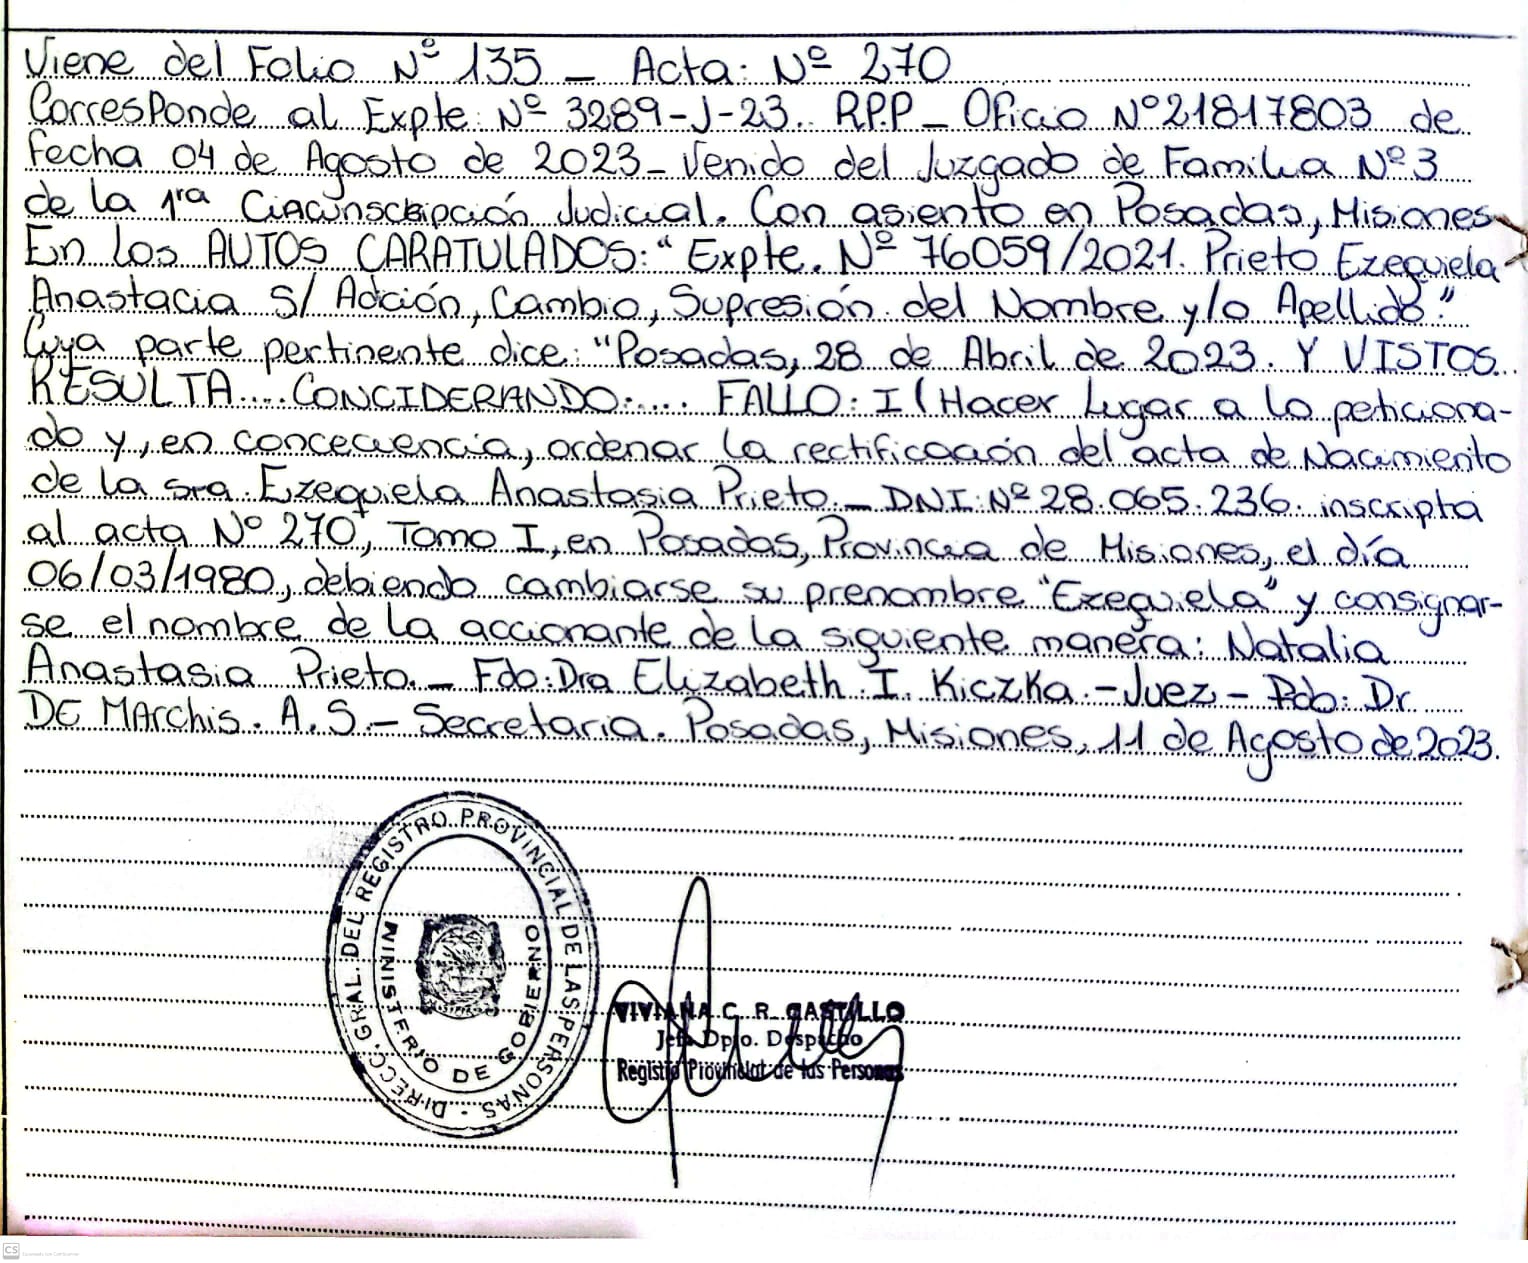 Viene del Folio Nº 135 – Acta: Nº 270
Corresponde al Expte: Nº 3289-J-23. RPP – Oficio Nº 21817803 de
fecha 04 de Agosto de 2023 – Venido del Juzgado de Familia Nº 3
de la 1ra Circunscripción Judicial. Con asiento en Posadas, Misiones
En los AUTOS CARATULADOS: "Expte. Nº 76059/2021. Prieto Ezequiela
Anastacia S/ Adición, Cambio, Supresión del Nombre y/o Apellido."
Cuya parte pertinente dice: "Posadas, 28 de Abril de 2023. Y VISTOS...
RESULTA.... CONCIDERANDO..... FALLO: I( Hacer Lugar a lo peticiona-
do y, en concecuencia, ordenar la rectificación del acta de Nacimiento
de la sra. Ezequiela Anastasia Prieto. – DNI: Nº 28.065.236. inscripta
al acta Nº 270, Tomo I, en Posadas, Provincia de Misiones, el día
06/03/1980, debiendo cambiarse su prenombre "Ezequiela" y consignar-
se el nombre de la accionante de la siguiente manera: Natalia
Anastasia Prieto. – Fdo: Dra Elizabeth I. Kiczka. – Juez – Pdo: Dr.
DE MArchis. A. S. – Secretaria. Posadas, Misiones, 11 de Agosto de 2023.
DIRECC. GRAL. DEL REGISTRO PROVINCIAL DE LAS PERSONAS
MINISTERIO DE GOBIERNO
VIVIANA C. R. CASTILLO
Jefa Dpto. Despacho
Registro Provincial de las Personas
CS
Scanned with CamScanner